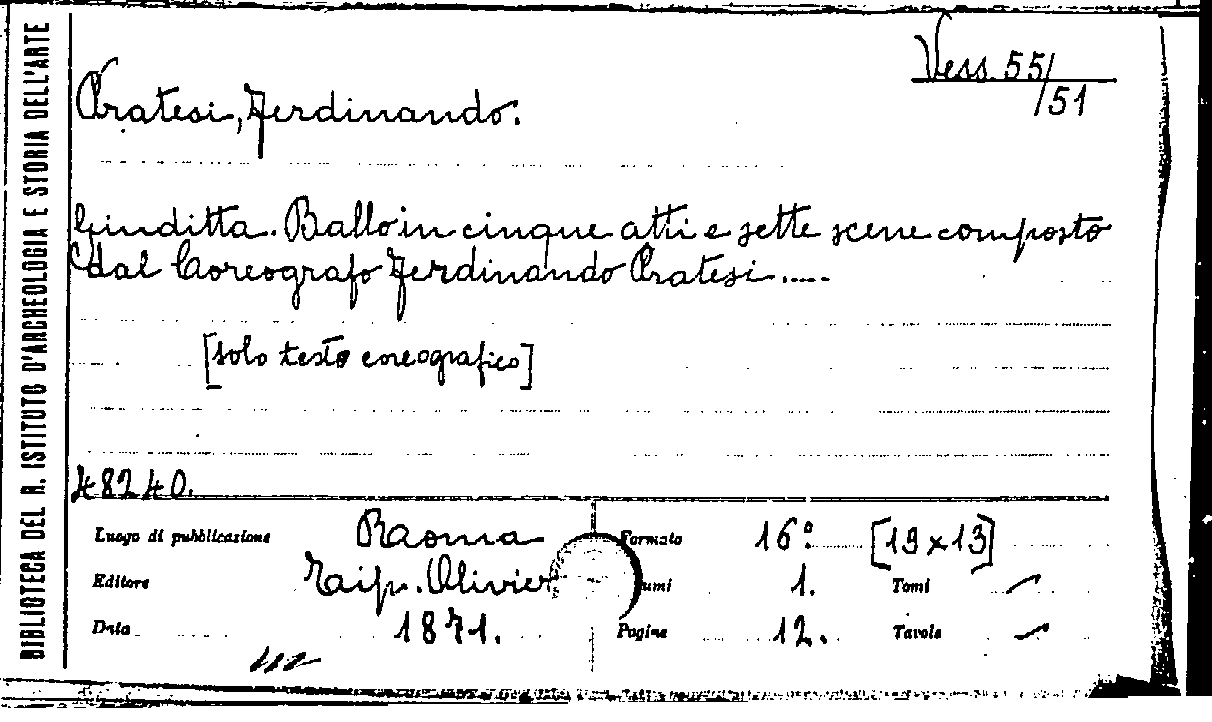 BIBLIOTECA DEL R. ISTITUTO D'ARCHEOLOGIA E STORIA DELL'ARTE
Vess. 55/
/51
Pratesi, Ferdinando.
Giuditta. Ballo in cinque atti e sette scene composto
dal Coreografo Ferdinando Pratesi.....
[solo testo coreografico]
48240.
Luogo di pubblicazione Roma Formato 16° [19x13]
Editore Tip. Olivieri umi 1. Tomi —
Data 1871. Pagine 12. Tavole —